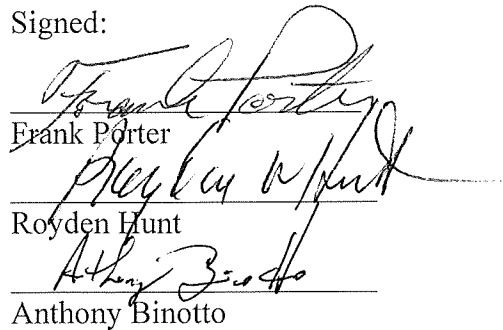 Signed:
Frank Porter
Frank Porter
Royden W Hunt
Royden Hunt
Anthony Binotto
Anthony Binotto